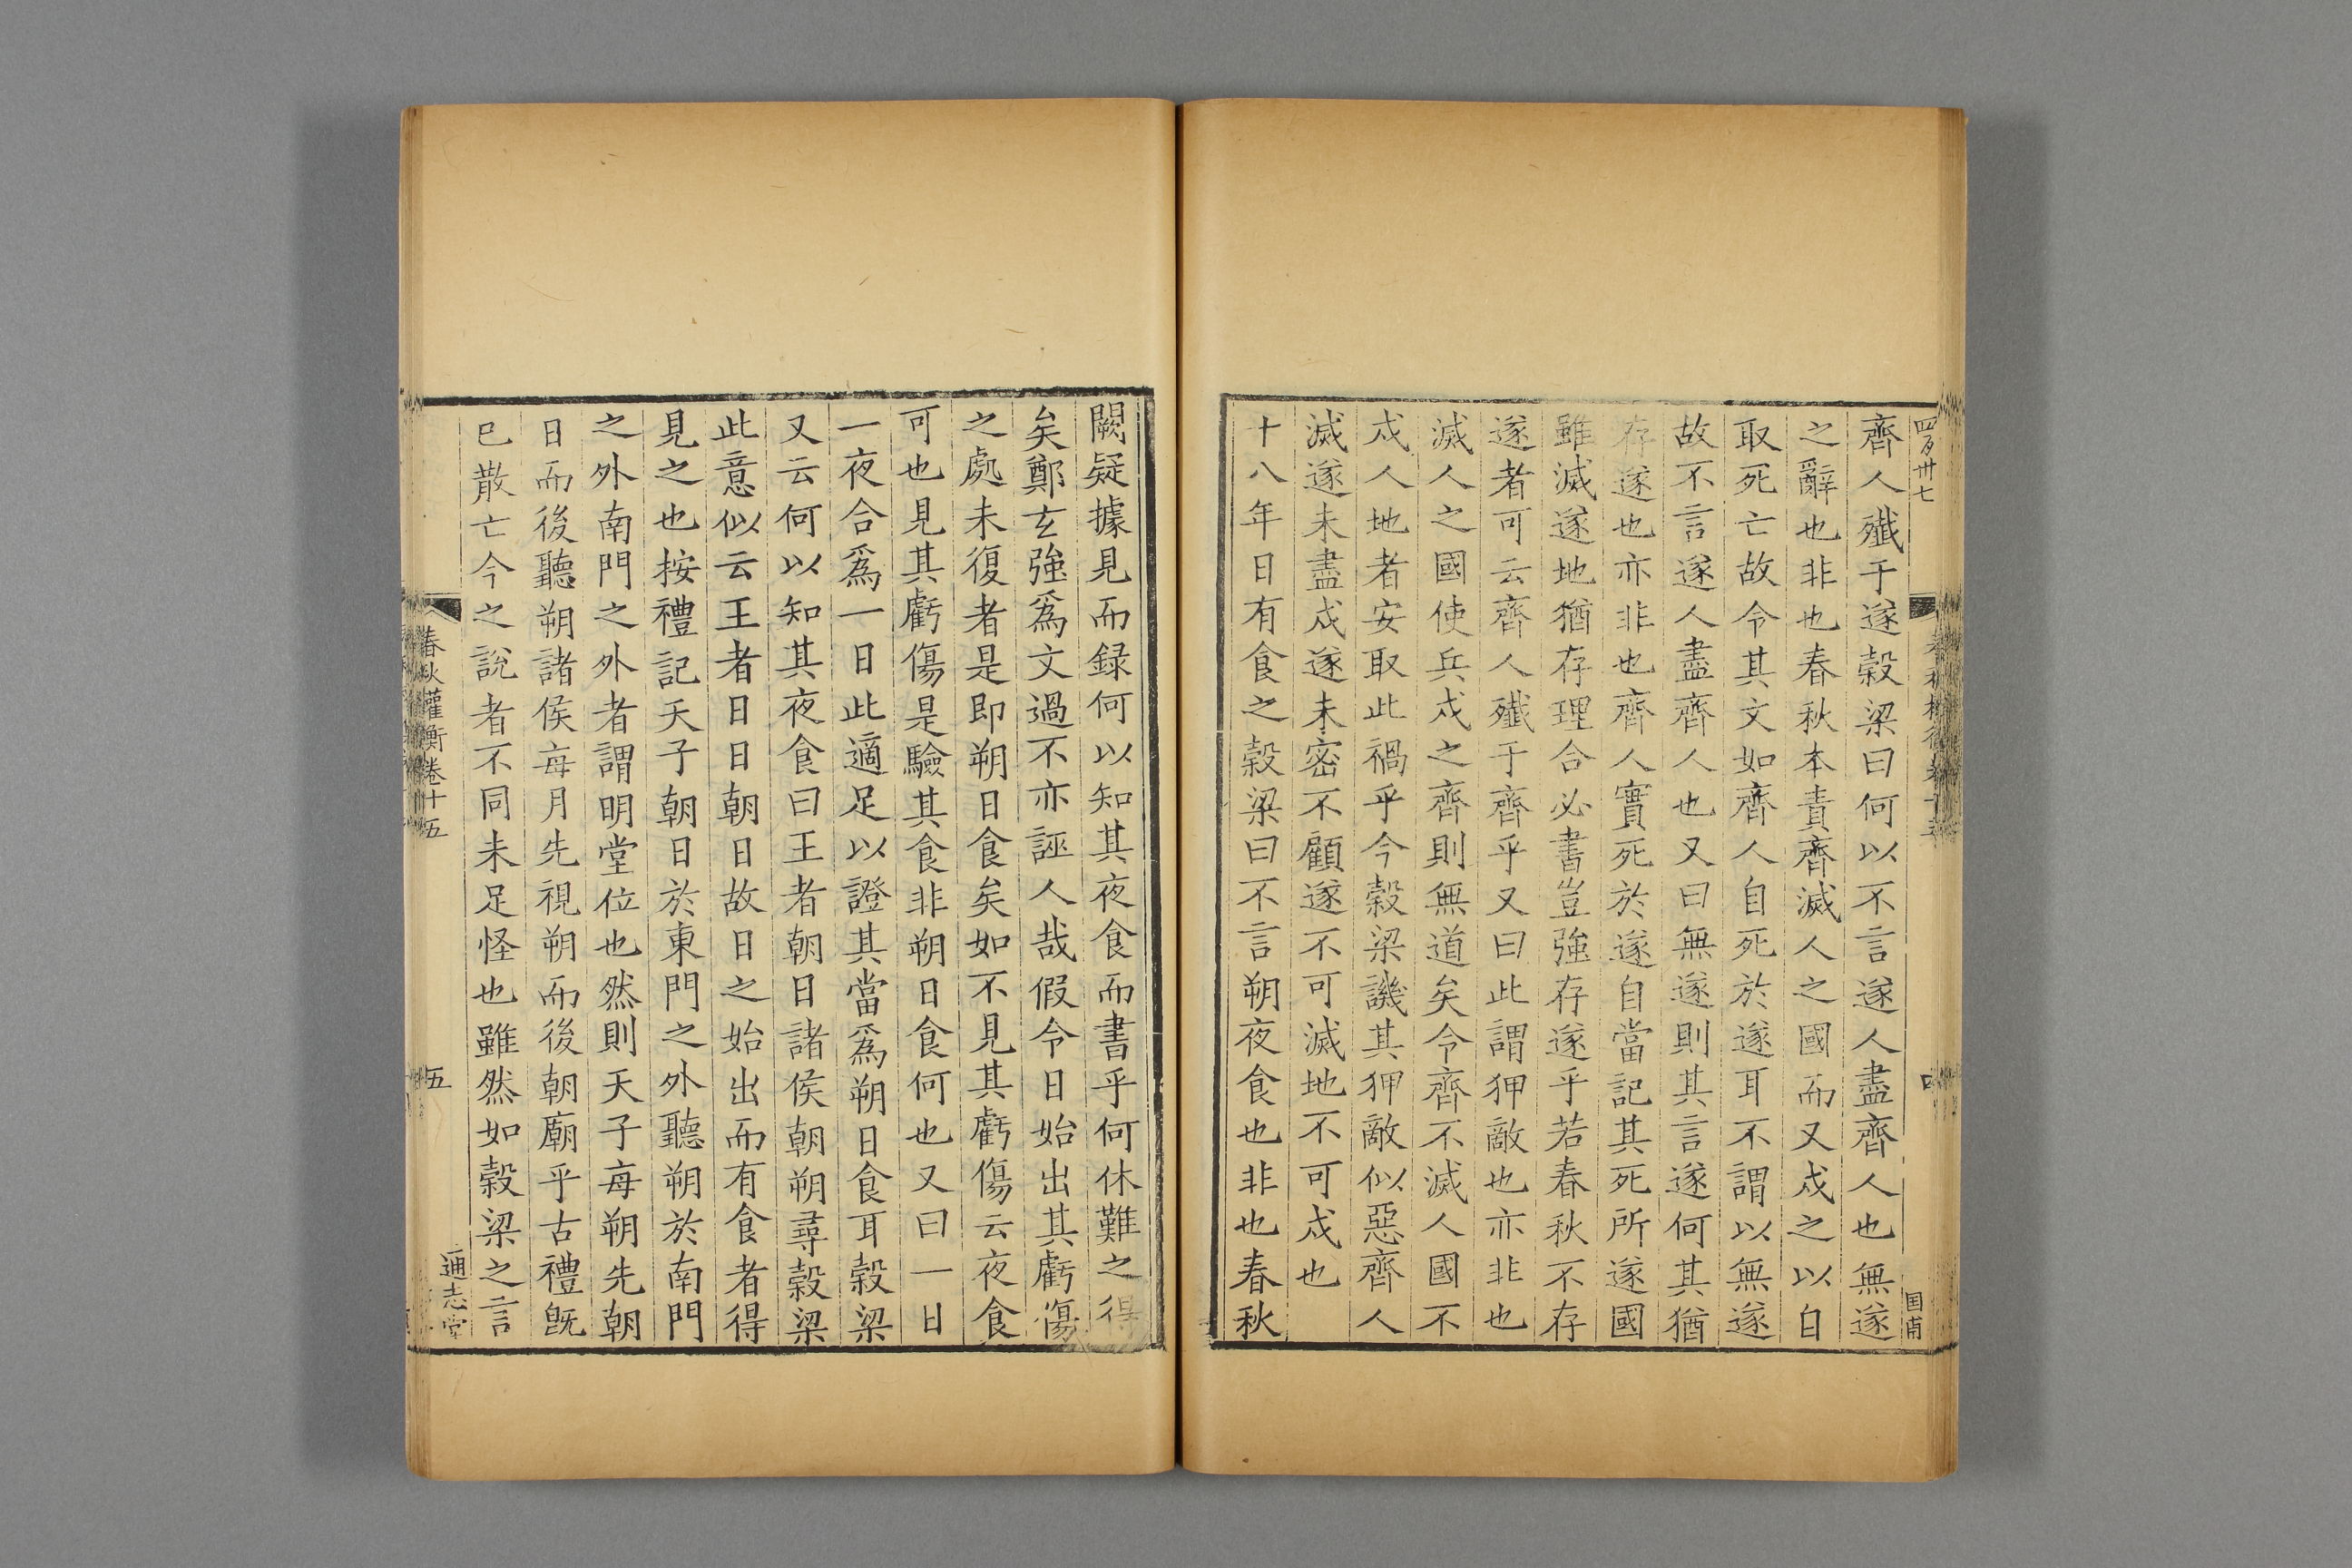 四百卅七
齊人殲于遂穀梁曰何以不言遂人盡齊人也無遂
之辭也非也春秋本責齊滅人之國而又戍之以自
取死亡故令其文如齊人自死於遂耳不謂以無遂
故不言遂人盡齊人也又曰無遂則其言遂何其猶
存遂也亦非也齊人實死於遂自當記其死所遂國
雖滅遂地猶存理合必書豈強存遂乎若春秋不存
遂者可云齊人殲于齊乎又曰此謂狎敵也亦非也
滅人之國使兵戍之齊則無道矣令齊不滅人國不
戍人地者安取此禍乎今穀梁譏其狎敵似惡齊人
滅遂未盡戍遂未密不顧遂不可滅地不可戍也
十八年日有食之穀梁曰不言朔夜食也非也春秋
闕疑據見而録何以知其夜食而書乎何休難之得
矣鄭玄強爲文過不亦誣人哉假令日始出其虧傷
之處未復者是即朔日食矣如不見其虧傷云夜食
可也見其虧傷是驗其食非朔日食何也又曰一日
一夜合爲一日此適足以證其當爲朔日食耳穀梁
又云何以知其夜食曰王者朝日諸侯朝朔尋穀梁
此意似云王者日日朝日故日之始出而有食者得
見之也按禮記天子朝日於東門之外聽朔於南門
之外南門之外者謂明堂位也然則天子每朔先朝
日而後聽朔諸侯每月先視朔而後朝廟乎古禮既
已散亡今之說者不同未足怪也雖然如穀梁之言
春秋權衡卷十五
五
通志堂